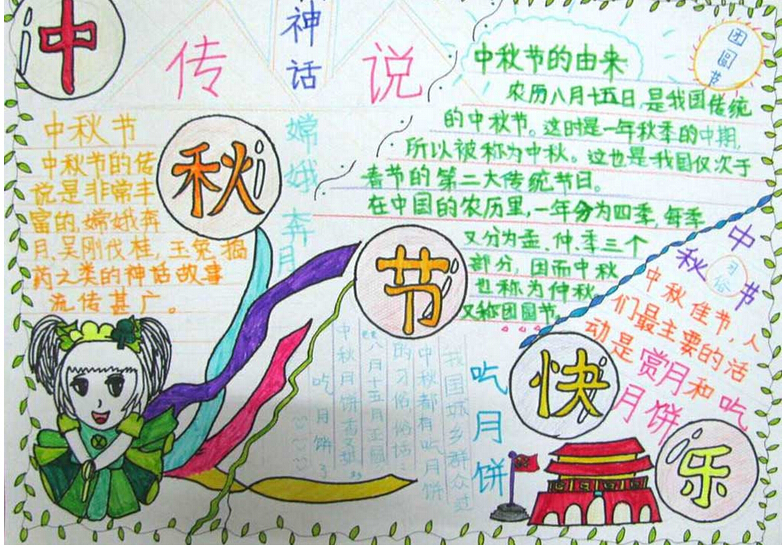 中秋节快乐
神话
传说
中秋节
中秋节的传
说是非常丰
富的,嫦娥奔
月,吴刚伐桂,玉兔捣
药之类的神话故事
流传甚广。
嫦娥奔月
中秋节的由来
农历八月十五日,是我国传统
的中秋节。这时是一年秋季的中期,
所以被称为中秋。这也是我国仅次于
春节的第二大传统节日。
在中国的农历里,一年分为四季,每季
又分为孟、仲、季三个
部分,因而中秋
也称为仲秋,
又称团圆节。
团圆节
中秋节
习俗
中秋佳节,人
们最主要的活
动是赏月和吃
月饼
吃月饼
我国城乡群众过
中秋都有吃月饼
的习俗,俗话
八月十五月正圆
中秋月饼香又甜
吃月饼了